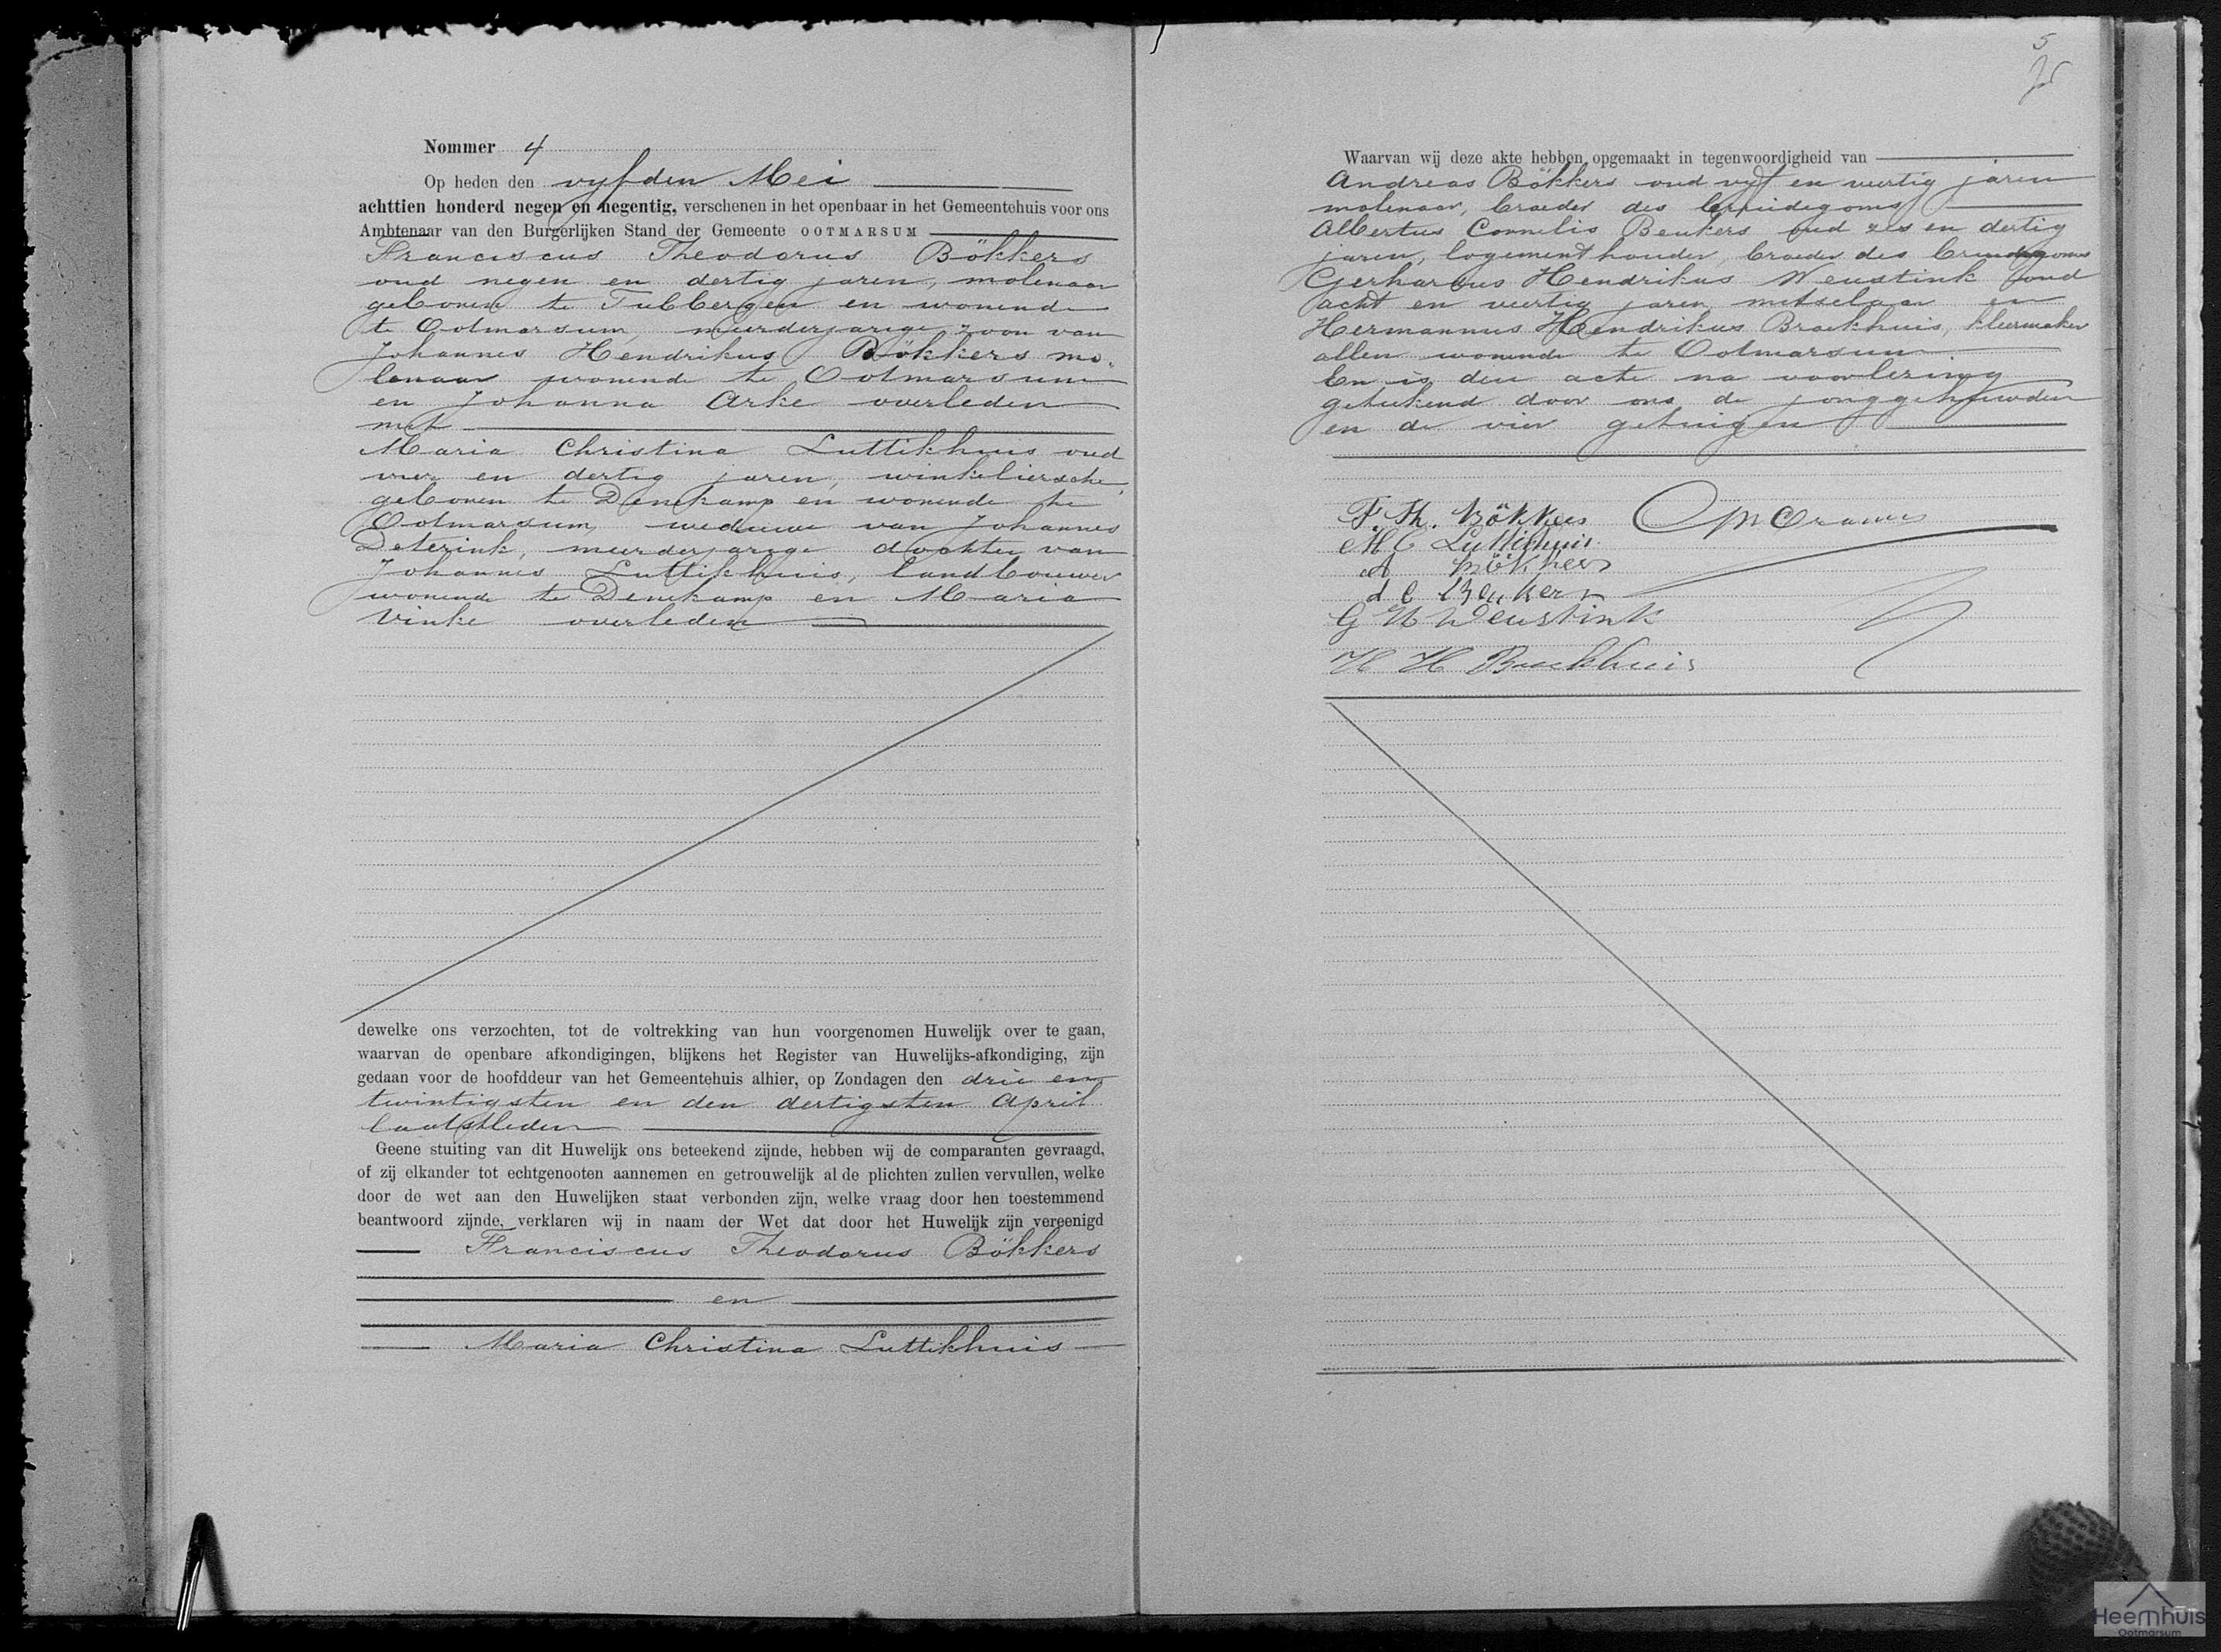 Nommer 4
Op heden den vyfden Mei
achttien honderd negen en negentig, verschenen in het openbaar in het Gemeentehuis voor ons
Ambtenaar van den Burgerlijken Stand der Gemeente OOTMARSUM
Franciscus Theodorus Bökkers
oud negen en dertig jaren, molenaar
geboren te Tubbergen en wonende
te Ootmarsum, meerderjarige zoon van
Johannes Hendrikus Bökkers mo-
lenaar wonende te Ootmarsum
en Johanna Arke overleden
met
Maria Christina Luttikhuis oud
vier en dertig jaren, winkeliersche,
geboren te Denekamp en wonende te
Ootmarsum, weduwe van Johannes
Deterink, meerderjarige dochter van
Johannes Luttikhuis, landbouwer
wonende te Denekamp en Maria
Vinke overleden
dewelke ons verzochten, tot de voltrekking van hun voorgenomen Huwelijk over te gaan,
waarvan de openbare afkondigingen, blijkens het Register van Huwelijks-afkondiging, zijn
gedaan voor de hoofddeur van het Gemeentehuis alhier, op Zondagen den drie en
twintigsten en den dertigsten April
laatstleden
Geene stuiting van dit Huwelijk ons beteekend zijnde, hebben wij de comparanten gevraagd,
of zij elkander tot echtgenooten aannemen en getrouwelijk al de plichten zullen vervullen, welke
door de wet aan den Huwelijken staat verbonden zijn, welke vraag door hen toestemmend
beantwoord zijnde, verklaren wij in naam der Wet dat door het Huwelijk zijn vereenigd
Franciscus Theodorus Bökkers
en
Maria Christina Luttikhuis
5
Waarvan wij deze akte hebben opgemaakt in tegenwoordigheid van
Andreas Bökkers oud vyf en veertig jaren
molenaar, broeder des bruidegoms
Albertus Cornelis Beukers oud zes en dertig
jaren, logementhouder, broeder des bruidegoms
Gerhardus Hendrikus Weustink oud
acht en veertig jaren metselaar en
Hermannus Hendrikus Broekhuis, kleermaker
allen wonende te Ootmarsum
En is den acte na voorlezing
geteekend door ons de jonggehuwden
en de vier getuigen
F. Th. Bökkers
M C Luttikhuis
A Bökkers
A C Beukers
G H Weustink
H H Broekhuis
Heemhuis
Ootmarsum